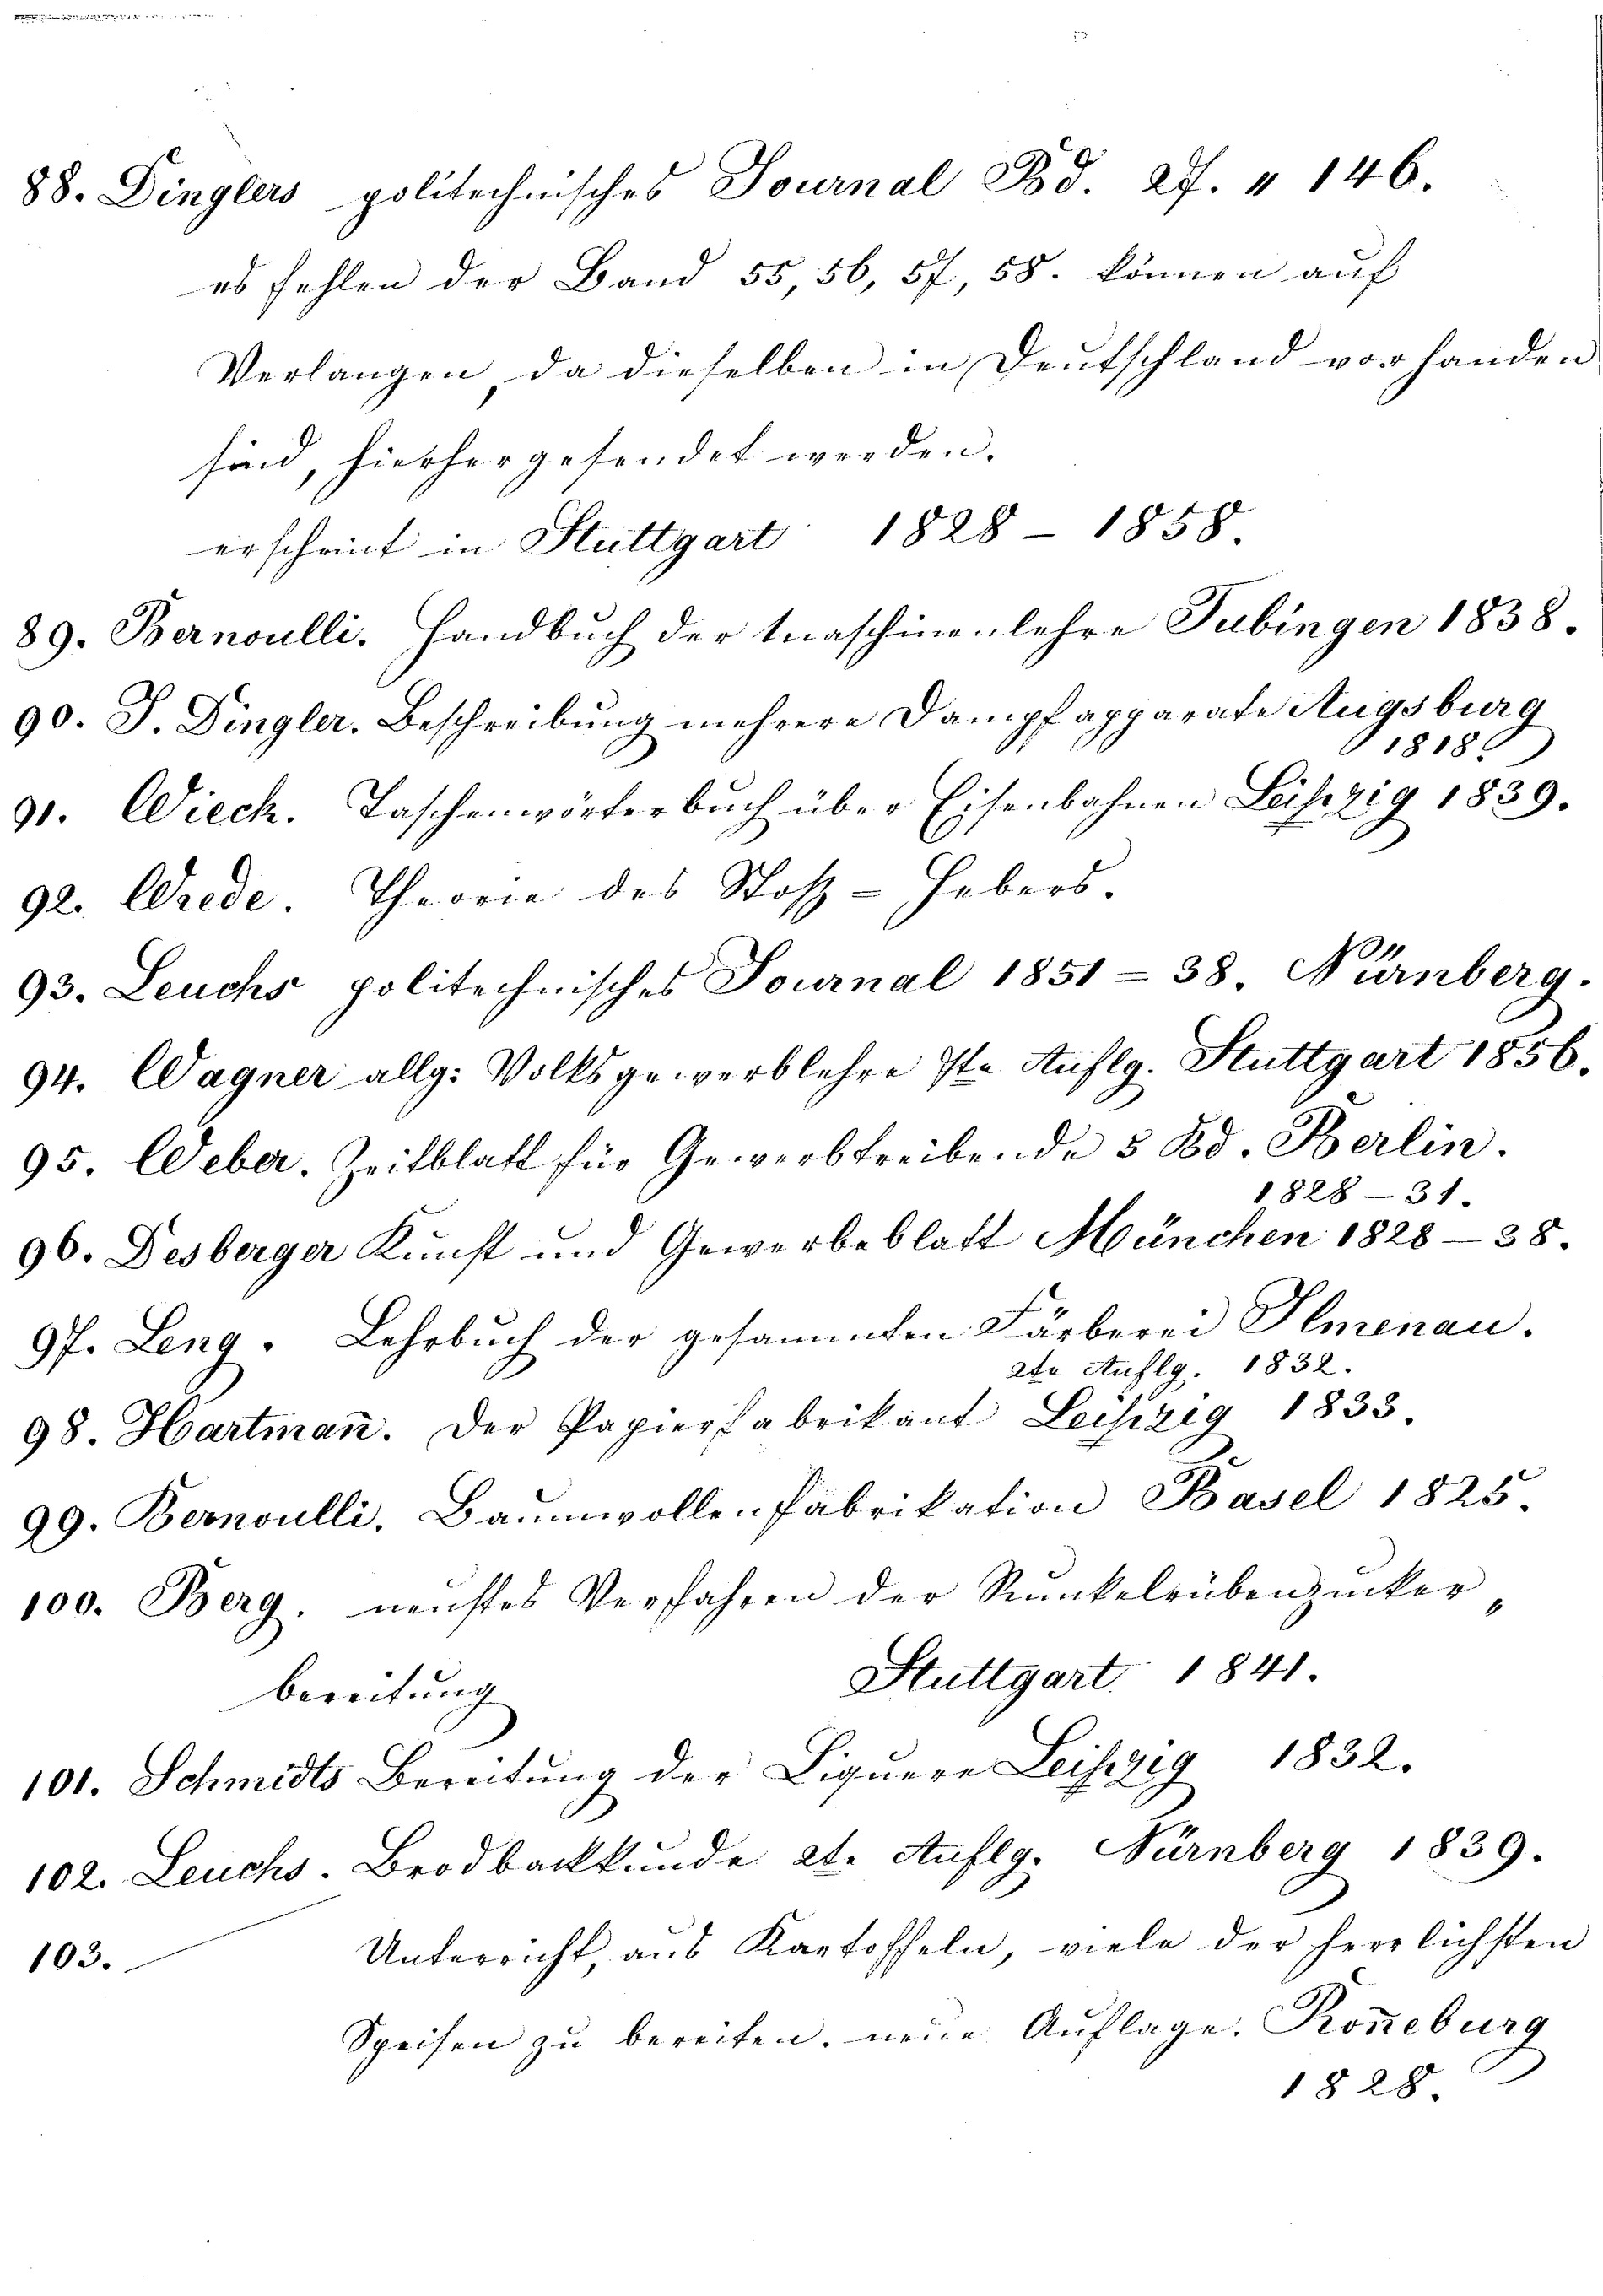 88. Dinglers politechnisches Journal Bd. 27. " 146.
es fehlen der Band 55, 56, 57, 58. können auf
Verlangen, da dieselben in Deutschland vorhanden
sind, hierhergesendet werden.
erscheint in Stuttgart 1828 – 1858.
89. Bernoulli. Handbuch der Maschinenlehre Tubingen 1838.
90. J. Dingler. Beschreibung mehrere Dampfapparate Augsburg
1818.
91. Wieck. Taschenwörterbuch über Eisenbahnen Leipzig 1839.
92. Wrede. Theorie des Stoß-Hebers.
93. Leuchs politechnisches Journal 1851 = 38. Nürnberg.
94. Wagner allg: Volksgewerblehre 7te Auflg. Stuttgart 1856.
95. Weber. Zeitblatt für Gewerbtreibende 5 Bd. Berlin.
1828 – 31.
96. Desberger Kunst und Gewerbeblatt München 1828 – 38.
97. Leng. Lehrbuch der gesammten Färberei Ilmenau.
2te Auflg. 1832.
98. Hartman̄. Der Papierfabrikant Leipzig 1833.
99. Bernoulli. Baumwollenfabrikation Basel 1825.
100. Berg. neustes Verfahren der Runkelrübenzucker„
bereitung Stuttgart 1841.
101. Schmidts Bereitung der Liquere Leipzig 1832.
102. Leuchs. Brodbackkunde 2t. Auflg. Nürnberg 1839.
103. Unterricht, aus Kartoffeln, viele der herrlichsten
Speisen zu bereiten. neue Auflage. Ron̄eburg
1828.